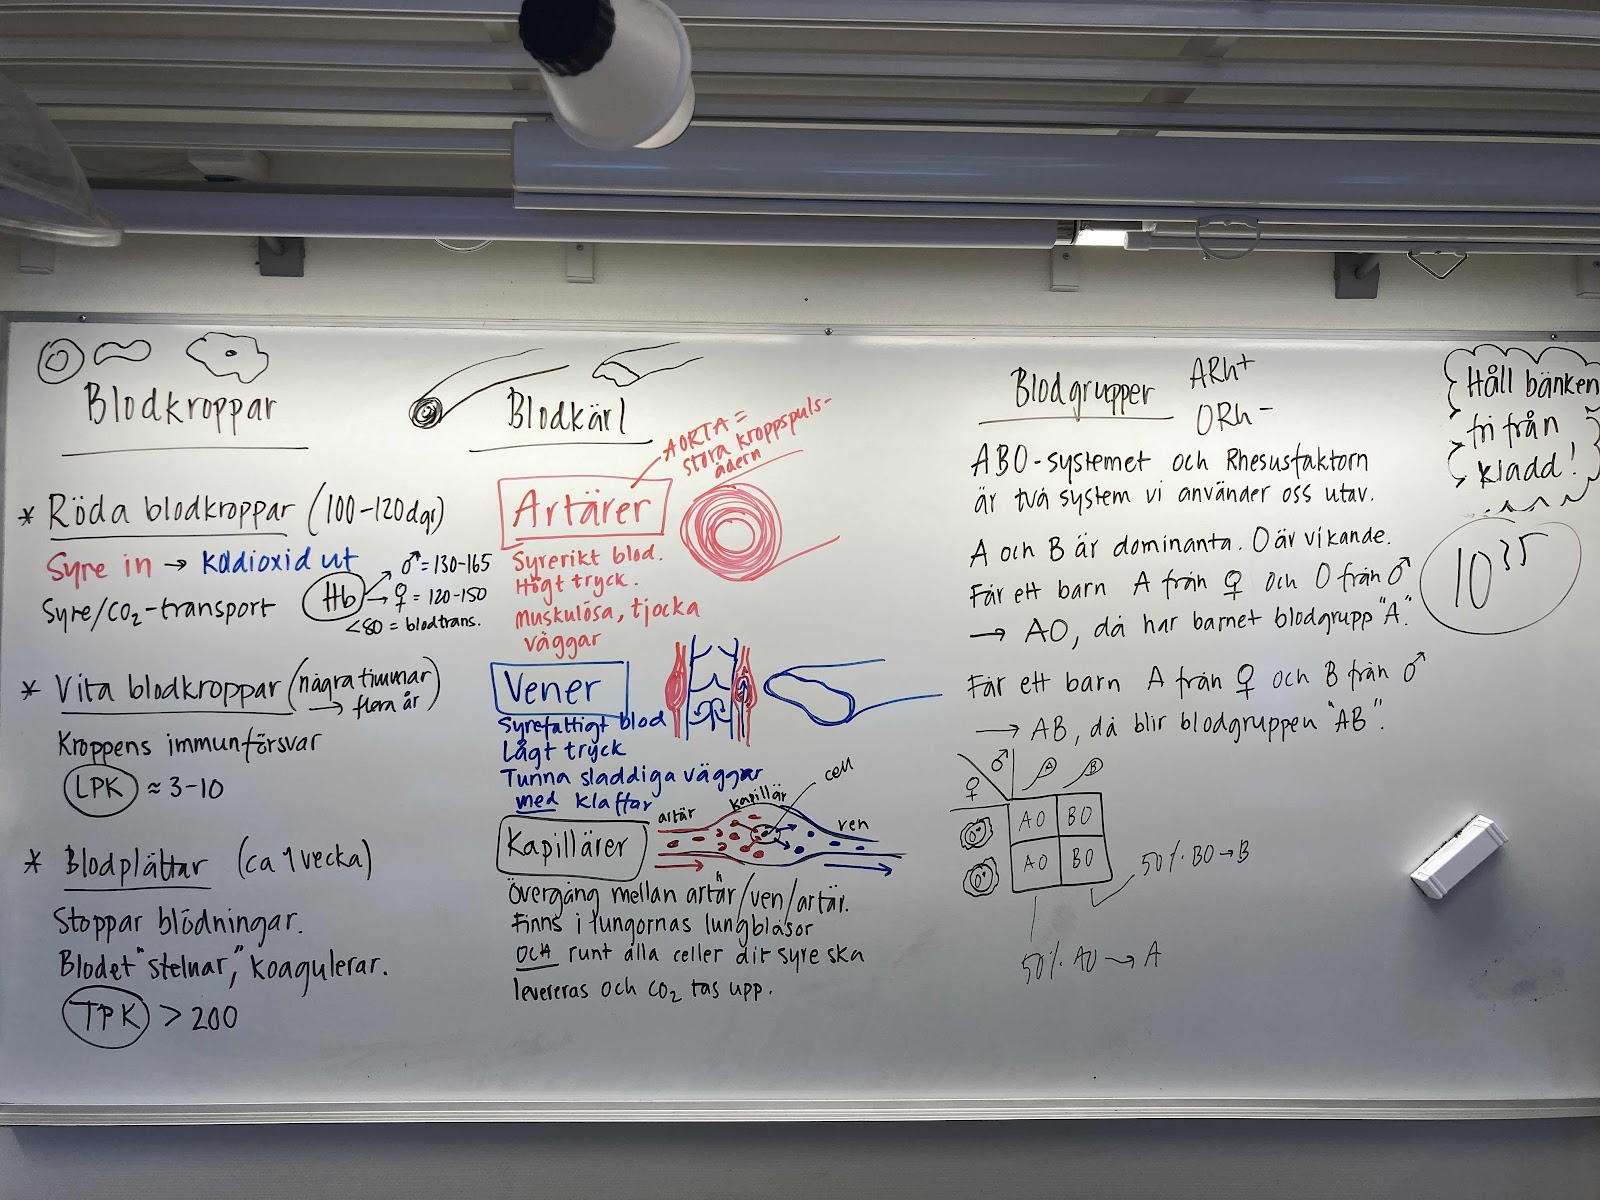 Blodkroppar
* Röda blodkroppar (100-120 dgr)
Syre in → koldioxid ut
Syre/CO₂-transport
Hb
→ ♂ = 130-165
→ ♀ = 120-150
<80 = blodtrans.
* Vita blodkroppar (några timmar
→ flera år)
Kroppens immunförsvar
LPK ≈ 3-10
* Blodplättar (ca 1 vecka)
Stoppar blödningar.
Blodet "stelnar," koagulerar.
TPK > 200
Blodkärl
AORTA =
stora kroppspuls-
ådern
Artärer
Syrerikt blod.
Högt tryck.
Muskulösa, tjocka
väggar
Vener
Syrefattigt blod
Lågt tryck
Tunna sladdiga väggar
med klaffar
artär
kapillär
cell
ven
Kapillärer
Övergång mellan artär/ven/artär.
Finns i lungornas lungblåsor
OCH runt alla celler dit syre ska
levereras och CO₂ tas upp.
Blodgrupper
ARh+
ORh-
AB0-systemet och Rhesusfaktorn
är två system vi använder oss utav.
A och B är dominanta. O är vikande.
Får ett barn A från ♀ och O från ♂
→ AO, då har barnet blodgrupp "A".
Får ett barn A från ♀ och B från ♂
→ AB, då blir blodgruppen "AB".
♂ A B
♀
AO BO
AO BO
50% BO → B
50% AO → A
Håll bänken
fri från
kladd!
10³⁵